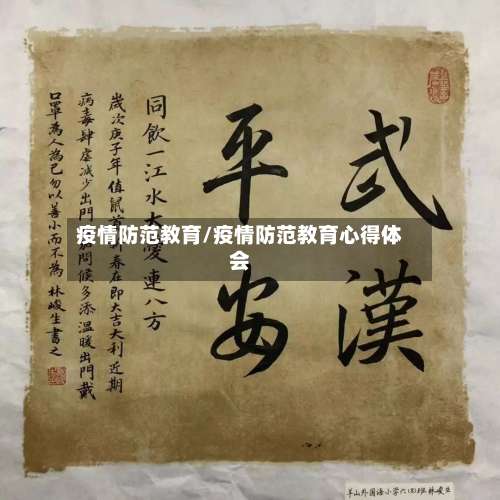 武漢
平安
同飲一江水大愛連八方
歲次庚子年值鼠首春在即大吉大利近期
病毒肆虐减少出門問候多添溫暖出門戴
口罩為人為己勿以善小而不為 林峻生書之
疫情防范教育/疫情防范教育心得体
会
羊山外国语小学六(3)班 林峻生